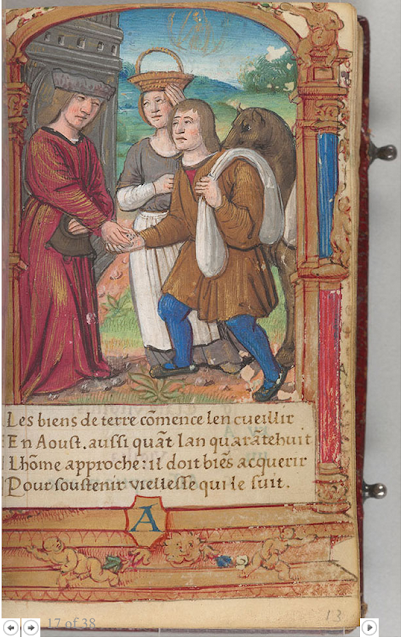 Les biens de terre cõmence len cueillir
En Aoust, aussi quãt lan quarãtehuit
Lhõme approche: il doit biẽs acquerir
Pour soustenir viellesse qui le suit.
A
17 of 38
13